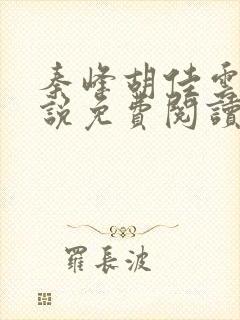 秦峰胡佳雲
說免費閱讀
羅長波